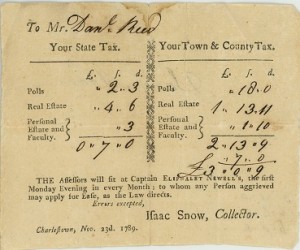 To Mr. Danl. Reed
Your State Tax.
Your Town & County Tax.
£. s. d.
£. s. d.
Polls " 2 " 3
Polls " 18.0
Real Estate " 4 " 6
Real Estate 1 " 13.11
Personal Estate and Faculty. } " 3
Personal Estate and Faculty. } " 1 " 10
0 " 7 " 0
2 " 13 " 9
" 7 " 0
£3 " 0 " 9
THE Assessors will sit at Captain ELIPHALET NEWELL's, the first
Monday Evening in every Month; to whom any Person aggrieved
may apply for Ease, as the Law directs.
Errors excepted,
Isaac Snow, Collector.
Charlestown, Nov. 23d. 1789.